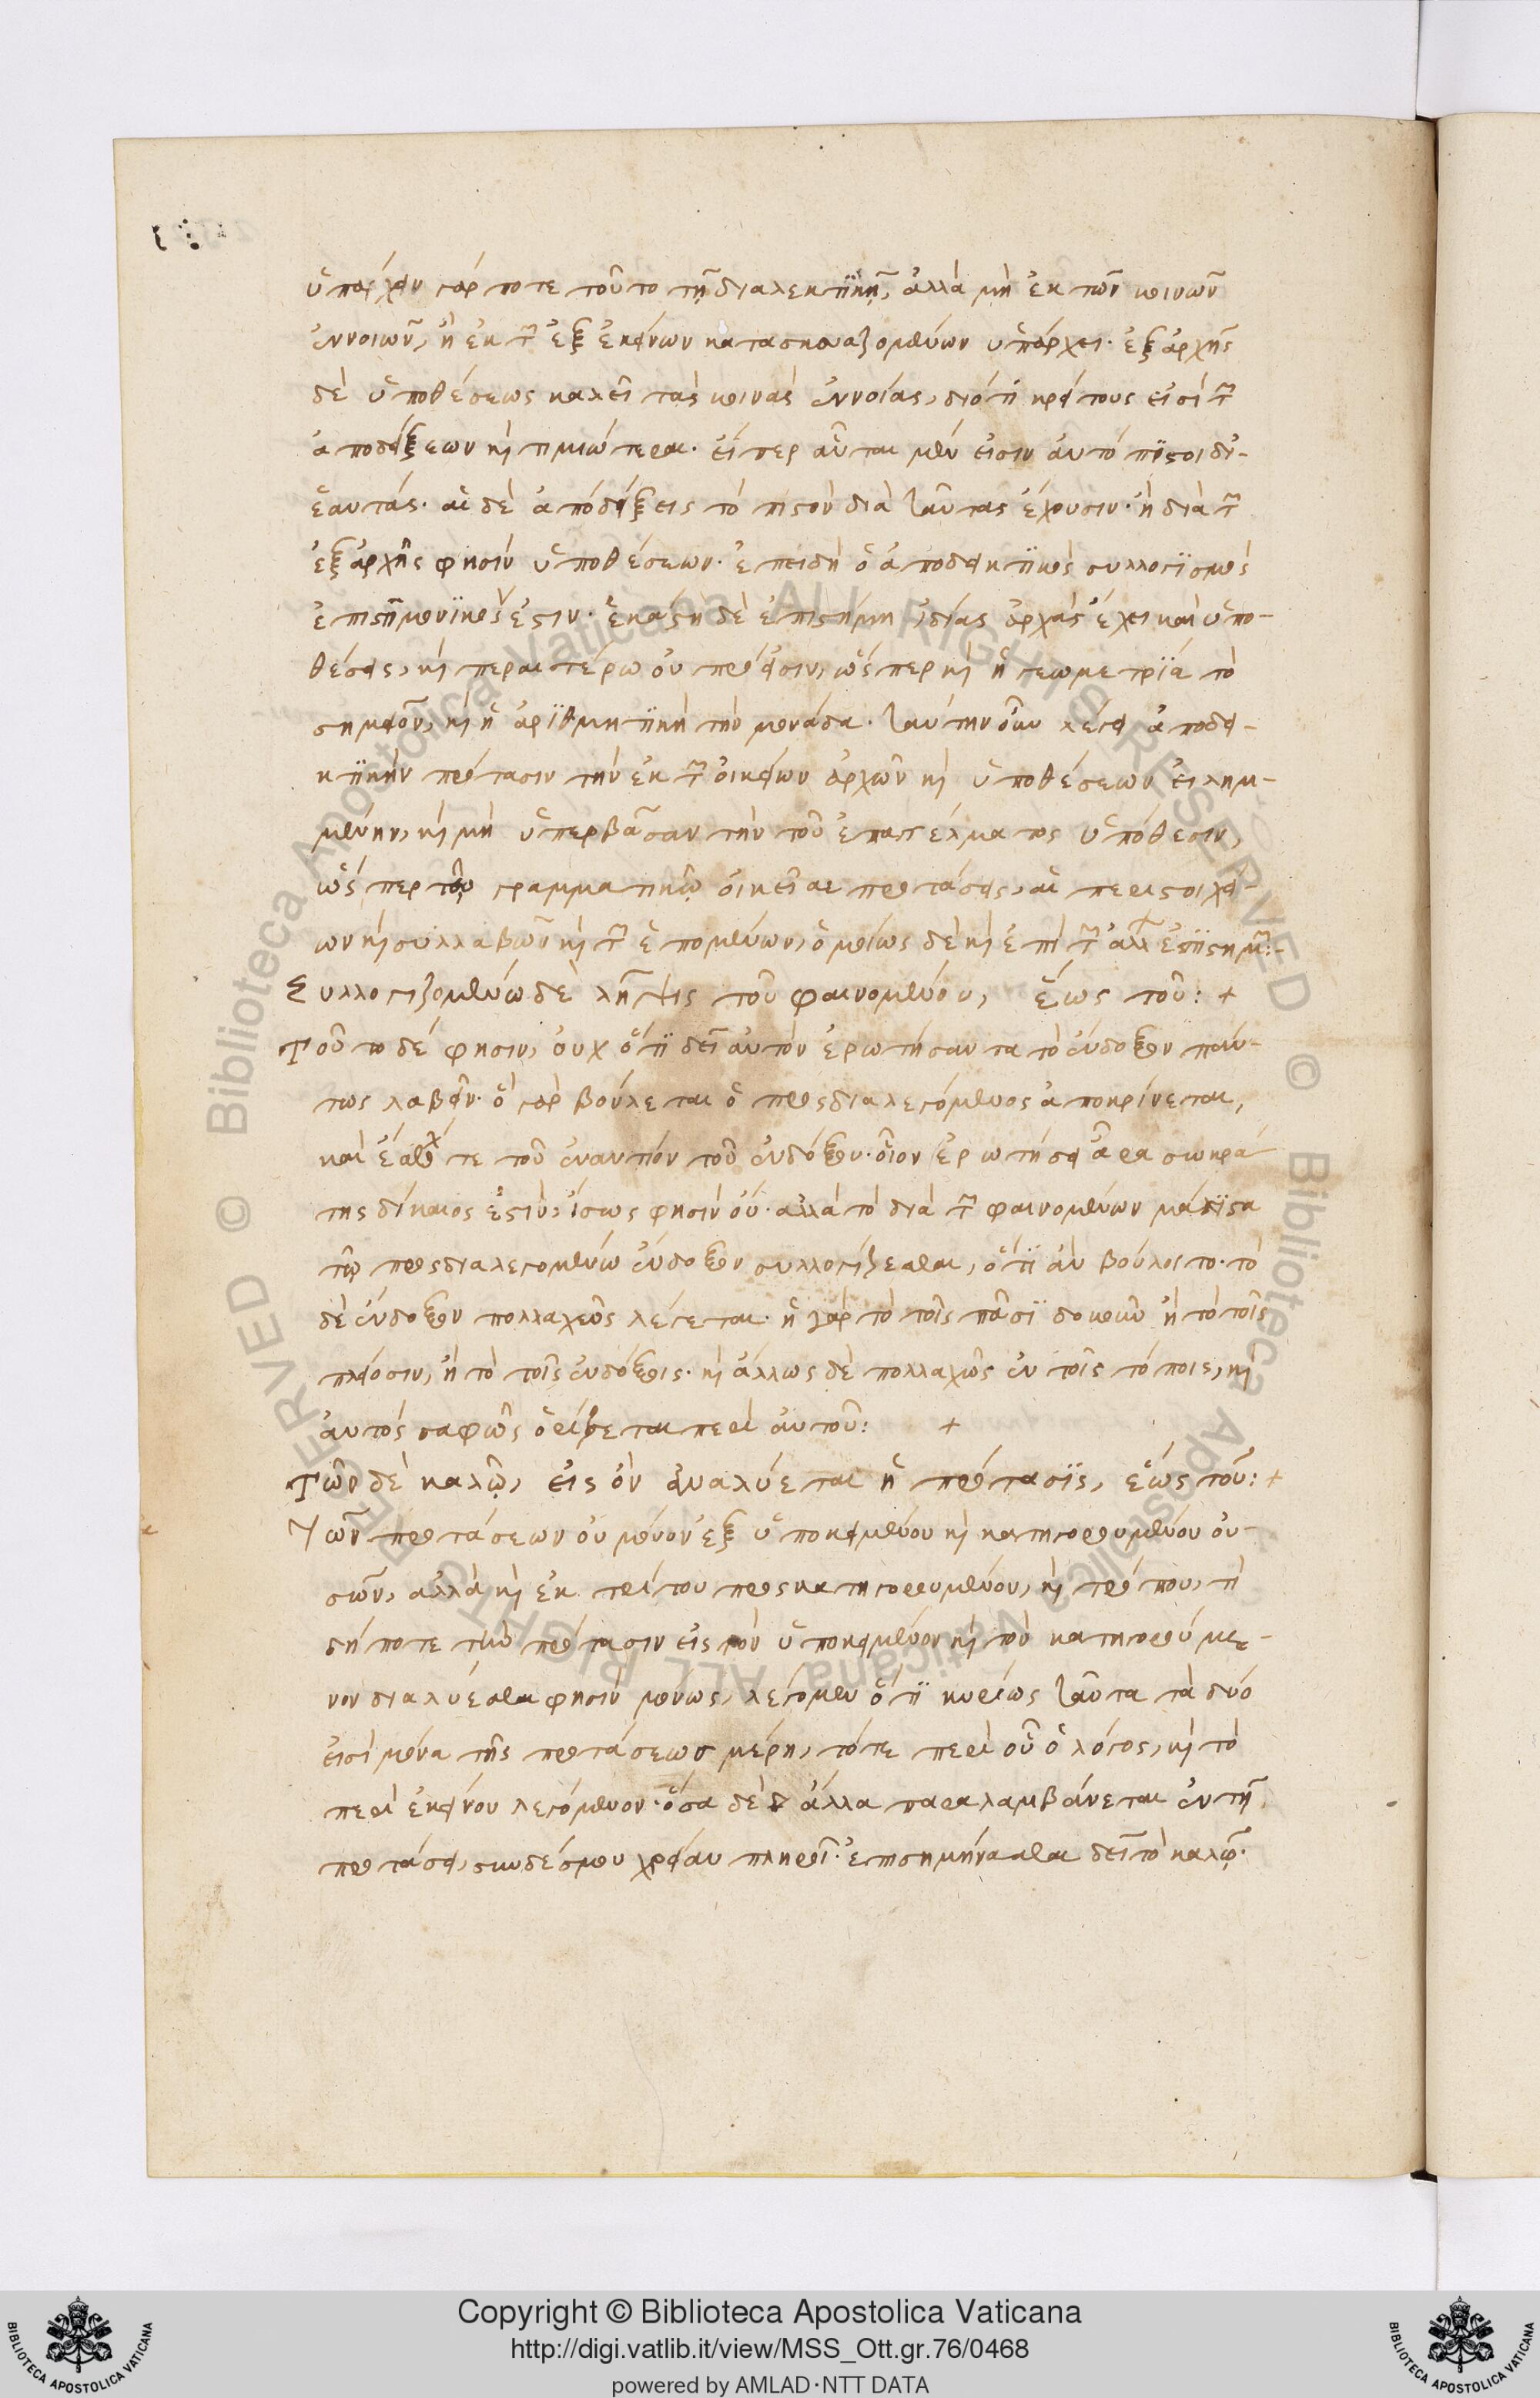 ὑπάρχειν γάρ ποτε τοῦτο τῇ διαλεκτϊκῇ, ἀλλὰ μὴ ἐκ τῶν κοινῶν
ἐννοιῶν, ἢ ἐκ τῶν ἐξ ἐκείνων κατασκευαζομένων ὑπάρχει· ἐξαρχῆς
δὲ ὑποθέσεως καλεῖ τὰς κοινὰς ἐννοίας, διότι κρείττους εἰσὶ τῶν
ἀποδείξεων καὶ τιμιώτεραι· εἴπερ αὗται μέν εἰσιν αὐτόπϊστοι δι᾽-
ἑαυτάς· αἱ δὲ ἀποδείξεις τὸ πιστὸν διὰ ταύτας ἔχουσιν· ἢ διὰ τῶν
ἐξαρχῆς φησὶν ὑποθέσεων· ἐπειδὴ ὁ ἀποδεικτϊκὸς συλλογϊσμὸς
ἐπιστημονϊκός ἐστιν· ἑκάστη δὲ ἐπιστήμη ἰδίας ἀρχὰς ἔχει καὶ ὑπο-
θέσεις, καὶ περαιτέρω οὐ πρόεισιν, ὥσπερ καὶ ἡ γεωμετρϊα τὸ
σημεῖον, καὶ ἡ ἀρϊθμητϊκὴ τὴν μονάδα· ταύτην οὖν λέγει ἀποδει-
κτϊκὴν πρότασιν τὴν ἐκ τῶν οἰκείων ἀρχῶν καὶ ὑποθέσεων εἰλημ-
μένην, καὶ μὴ ὑπερβᾶσαν τὴν τοῦ ἐπαγγέλματος ὑπόθεσιν,
ὥσπερ τῷ γραμματικῷ οἰκεῖαι προτάσεις, αἱ περὶ στοιχεί-
ων καὶ συλλαβῶν καὶ τῶν ἑπομένων, ὁμοίως δὲ καὶ ἐπὶ τῶν ἄλλων ἐπϊστημῶν:-
Συλλογιζομένω δὲ λῆψις τοῦ φαινομένου, ἕως τοῦ: +
Τοῦτο δέ φησιν, οὐχ ὅτϊ δεῖ αὐτὸν ἐρωτήσαντα τὸ ἔνδοξον πάν-
τως λαβεῖν· ὃ γὰρ βούλεται ὁ προσδιαλεγόμενος ἀποκρίνεται,
τοῦ ἐναντίον τοῦ ἐνδόξου· οἷον ἐρωτήσει ἆρα σωκρά
της δίκαιος ἐστὶν, ἴσως φησὶν οὔ· ἀλλὰ τὸ διὰ τῶν φαινομένων μάλϊστα
τῷ προσδιαλεγομένω ἔνδοξον συλλογίζεσθαι, ὅτϊ ἂν βούλοιτο· τὸ
δὲ ἔνδοξον πολλαχῶς λέγεται· ἢ γὰρ τὸ τοῖς πᾶσϊ δοκοῦν ἢ τὸ τοῖς
πλείοσιν, ἢ τὸ τοῖς ἐνδόξοις· καὶ ἄλλως δὲ πολλαχῶς ἐν τοῖς τόποις, καὶ
αὐτὸς σαφῶς ὁρίζεται περὶ αὐτοῦ: +
δὲ καλῶ, εἰς ὃν ἀναλύεται ἡ πρότασϊς, ἕως τοῦ: +
Τῶν προτάσεων οὐ μόνον ἐξ ὑποκειμένου καὶ κατηγορουμένου οὐ-
σῶν, ἀλλὰ καὶ ἐκ τρίτου προσκατηγορουμένου, καὶ τρόπου, τί
δήποτε τὴν πρότασιν εἰς τὸν ὑποκείμενον καὶ τὸν κατηγορούμε-
νον διαλύεσθαι φησὶν μόνως, λέγομεν ὅτϊ κυρίως ταῦτα τὰ δύο
εἰσὶ μόνα τῆς προτάσεως μέρη, τότε περὶ οὗ ὁ λόγος, καὶ τὸ
περὶ ἐκείνου λεγόμενον· ὅσα δὲ ἄλλα παραλαμβάνεται ἐν τῇ
προτάσει, συνδέσμου χρείαν πληροῖ· ἐπισημήνασθαι δεῖ τὸ καλῶ·